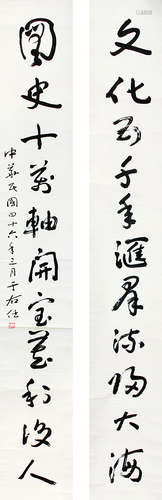 文化五千年滙羣流歸大海
圖史十萬軸開寶藏利後人
中華民國四十六年三月于右任